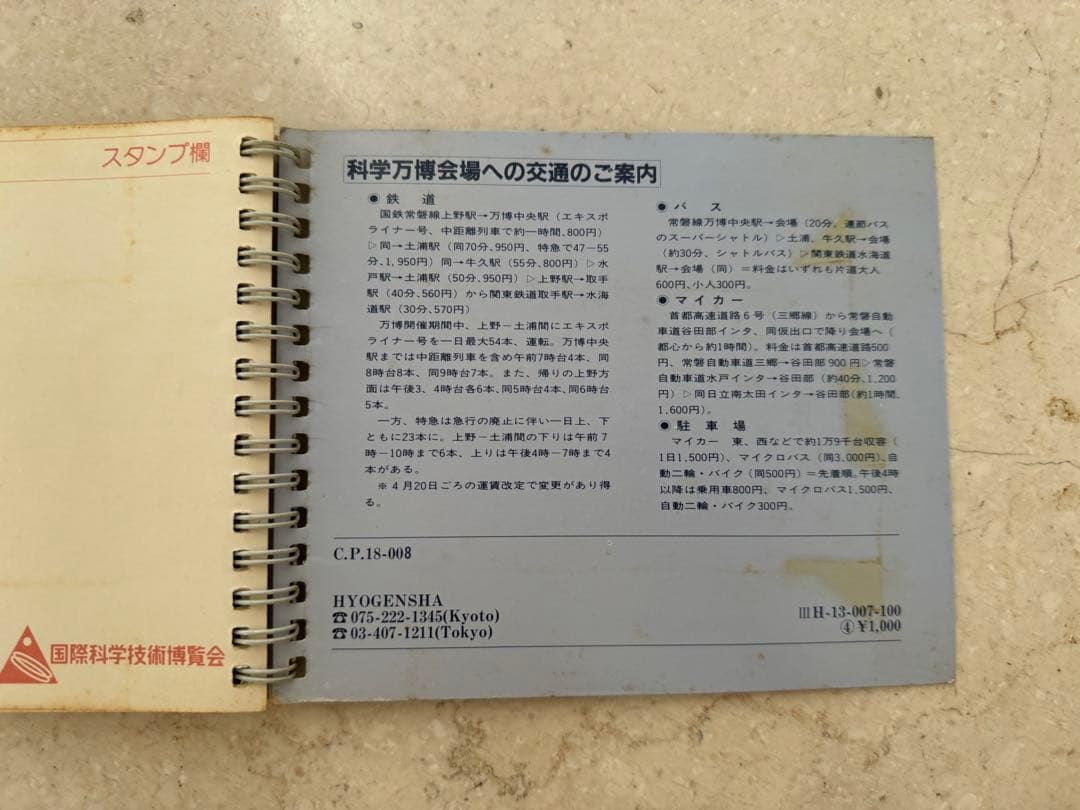 スタンプ欄
国際科学技術博覧会
科学万博会場への交通のご案内
● 鉄 道
国鉄常磐線上野駅→万博中央駅（エキスポ
ライナー号、中距離列車で約一時間、800円）
▷同→土浦駅（同70分、950円、特急で47−55
分、1,950円）同→牛久駅（55分、800円）▷水
戸駅→土浦駅（50分、950円）▷上野駅→取手
駅（40分、560円）から関東鉄道取手駅→水海
道駅（30分、570円）
万博開催期間中、上野−土浦間にエキスポ
ライナー号を一日最大54本、運転。万博中央
駅までは中距離列車を含め午前7時台4本、同
8時台8本、同9時台7本。また、帰りの上野方
面は午後3、4時台各6本、同5時台4本、同6時台
5本。
一方、特急は急行の廃止に伴い一日上、下
ともに23本に。上野−土浦間の下りは午前7
時−10時まで6本、上りは午後4時−7時まで4
本がある。
※4月20日ごろの運賃改定で変更があり得
る。
● バ ス
常磐線万博中央駅→会場（20分、連節バス
のスーパーシャトル）▷土浦、牛久駅→会場
（約30分、シャトルバス）▷関東鉄道水海道
駅→会場（同）＝料金はいずれも片道大人
600円、小人300円。
● マイカー
首都高速道路6号（三郷線）から常磐自動
車道谷田部インタ、同仮出口で降り会場へ（
都心から約1時間）。料金は首都高速道路500
円、常磐自動車道三郷→谷田部900円▷常磐
自動車道水戸インタ→谷田部（約40分、1,200
円）▷同日立南太田インタ→谷田部（約1時間、
1,600円）。
● 駐 車 場
マイカー 東、西などで約1万9千台収容（
1日1,500円）、マイクロバス（同3,000円）、自
動二輪・バイク（同500円）＝先着順。午後4時
以降は乗用車800円、マイクロバス1,500円、
自動二輪・バイク300円。
C.P.18-008
HYOGENSHA
☎075-222-1345(Kyoto)
☎03-407-1211(Tokyo)
ⅢH-13-007-100
④¥1,000